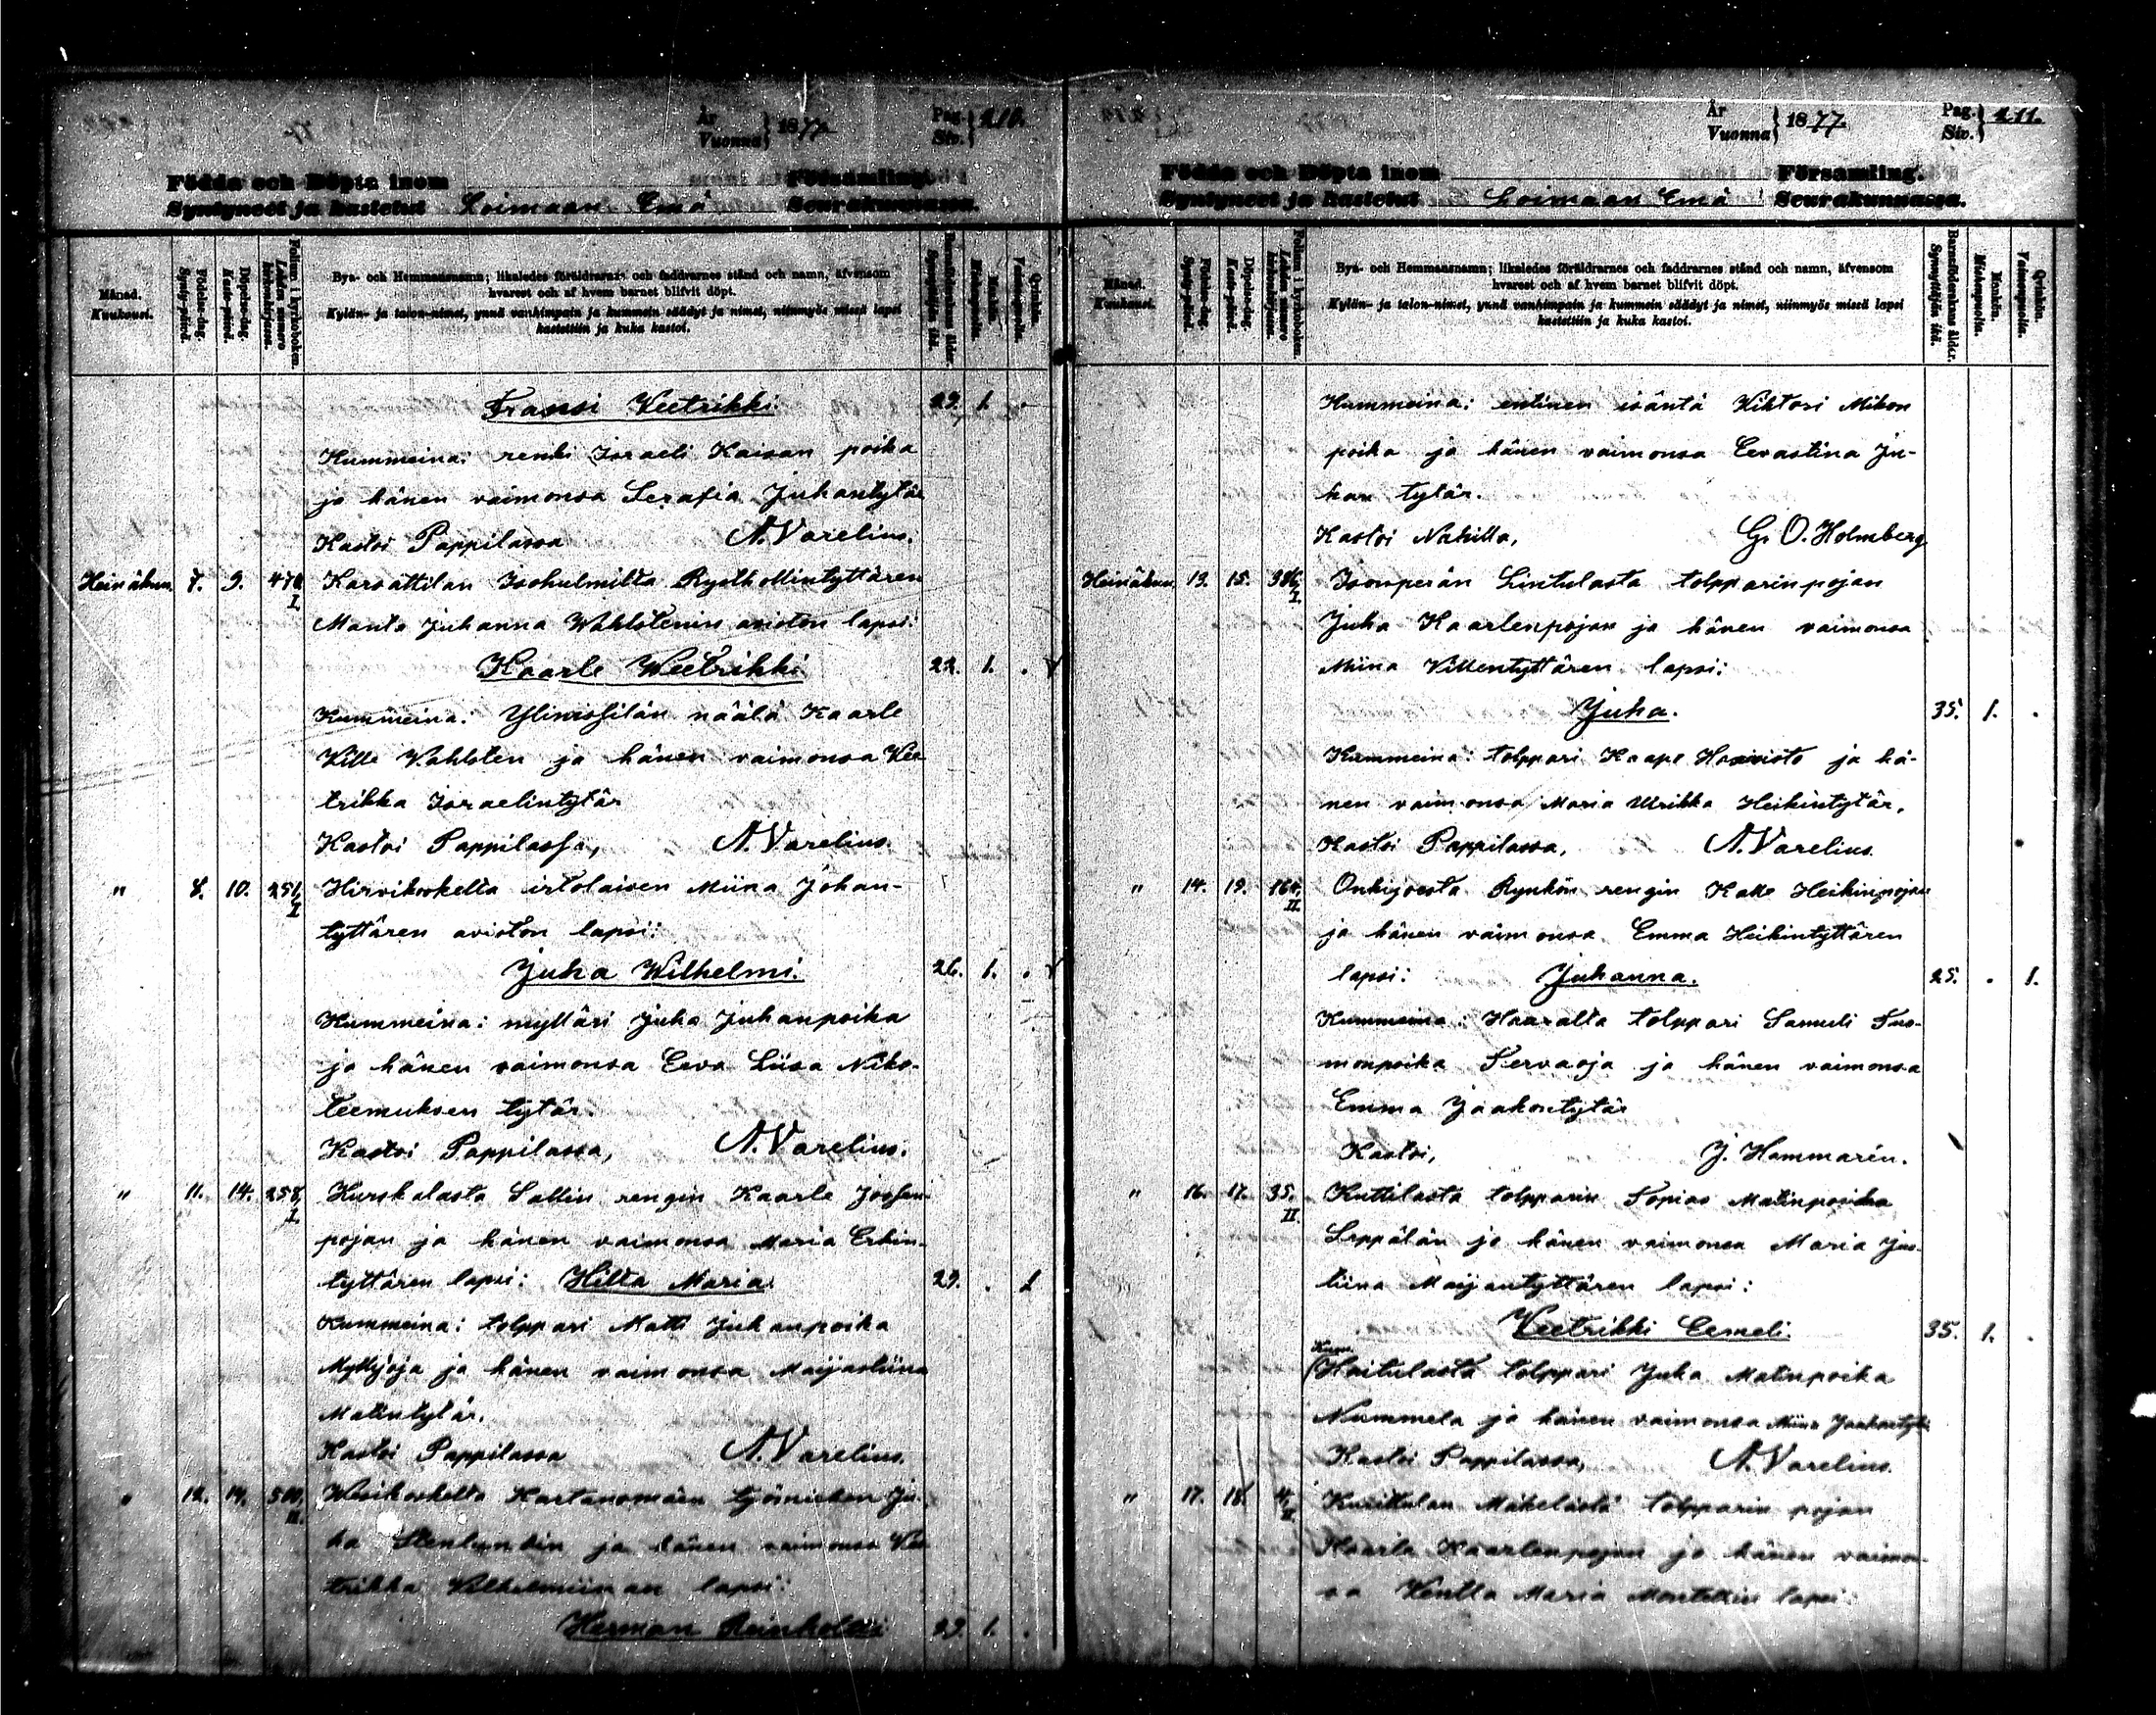 År
Vuonna } 1877.
Pag.
Siv. } 210.
Födda och Döpta inom Församling.
Syntyneet ja kastetut Loimaan Emä Seurakunnassa.
Månad.
Kuukausi.
Födelse-dag.
Synty-päivä.
Döpelse-dag.
Kaste-päivä.
Folium i kyrkoboken.
Lehden numero kirkonkirjassa.
Bya- och Hemmansnamn; likaledes föräldrarnes och faddrarnes stånd och namn, äfvensom
hvarest och af hvem barnet blifvit döpt.
Kylän- ja talon-nimet, ynnä vanhimpain ja kummein säädyt ja nimet, niinmyös missä lapsi
kastettiin ja kuka kastoi.
Barnföderskans ålder.
Synnyttäjän ikä.
Mankön.
Miehenpuolia.
Qvinkön.
Vaimonpuolia.
Fransi Veetrikki. 29. 1. .
Kummeina: renki Israeli Kaisan poika
ja hänen vaimonsa Serafia Juhantytär
Kastoi Pappilassa A. Varelius.
Heinäkuu. 7. 9. I. Karsattilan Isohulmilta
Manta Juhanna Wahlstenin aviotön lapsi:
Kaarle Weetrikki 22. 1. .
Kummeina: näälä Kaarle
Ville Vahlsten ja hänen vaimonsa Vee
trikka Israelintytär
Kastoi Pappilassa, A. Varelius.
" 8. 10. 251, I Hirvikoskelta irtolaisen Miina Johan-
tyttären aviotön lapsi:
Juha Wilhelmi. 26. 1. .
Kummeina: mylläri Juha Juhanpoika
ja hänen vaimonsa Eeva Liisa Niko-
teemuksen tytär.
Kastoi Pappilassa, A. Varelius.
" 11. 14. 258, I. Kurskalasta Sallin rengin Kaarle
pojan ja hänen vaimonsa Maria Erkin-
tyttären lapsi: Hilta Maria 29. . 1
Kummeina: tolppari Matti Juhanpoika
Myllyoja ja hänen vaimonsa Maijastiina
Matintytär.
Kastoi Pappilassa A. Varelius.
" 12. 14. II. Kartanomäen työmiehen Ju-
ha Stenlundin ja hänen vaimonsa Vee
trikka Vilhelmiinan lapsi:
Herman Reinholdi 29. 1. .
År
Vuonna } 1877.
Pag.
Siv. } 211.
Födda och Döpta inom Församling.
Syntyneet ja kastetut Loimaan Emä Seurakunnassa.
Månad.
Kuukausi.
Födelse-dag.
Synty-päivä.
Döpelse-dag.
Kaste-päivä.
Folium i kyrkoboken.
Lehden numero kirkonkirjassa.
Bya- och Hemmansnamn; likaledes föräldrarnes och faddrarnes stånd och namn, äfvensom
hvarest och af hvem barnet blifvit döpt.
Kylän- ja talon-nimet, ynnä vanhimpain ja kummein säädyt ja nimet, niinmyös missä lapsi
kastettiin ja kuka kastoi.
Barnföderskans ålder.
Synnyttäjän ikä.
Mankön.
Miehenpuolia.
Qvinkön.
Vaimonpuolia.
Kummeina: entinen isäntä Vihtori Mikon
poika ja hänen vaimonsa Eevastina Ju-
han tytär.
Kastoi G. O. Holmberg
Heinäkuu. 13. 15. 386, I. Isonperän Lintulasta tolpparinpojan
Juha Kaarlenpojan ja hänen vaimonsa
Miina Villentyttären lapsi:
Juha. 35. 1. .
Kummeina: tolppari Kaape Haavisto ja hä-
nen vaimonsa Maria Ulrikka Heikintytär,
Kastoi Pappilassa, A. Varelius.
" 14. 19. 164, II. Onkijoesta Rynkön rengin Kalle Heikinpojan
ja hänen vaimonsa Emma Heikintyttären
lapsi: Juhanna. 25. . 1.
Kummeina: Haaralta tolppari Samuli Tuo-
monpoika Tervaoja ja hänen vaimonsa
Emma Jaakontytär
Kastoi, J. Hammarén.
" 16. 17. 35. II. Kuttilasta tolpparin Topias Matinpoika
Leppälän ja hänen vaimonsa Maria Jus-
tiina Maijantyttären lapsi:
Veetrikki Eemeli. 35. 1. .
Kum.
Haitulasta tolppari Juha Matinpoika
Nummela ja hänen vaimonsa Miina Jaakontytär
Kastoi Pappilassa, A. Varelius.
" 17. 18. Mäkelästä tolpparin pojan
Kaarle Kaarlenpojan ja hänen vaimon-
sa Maria lapsi: